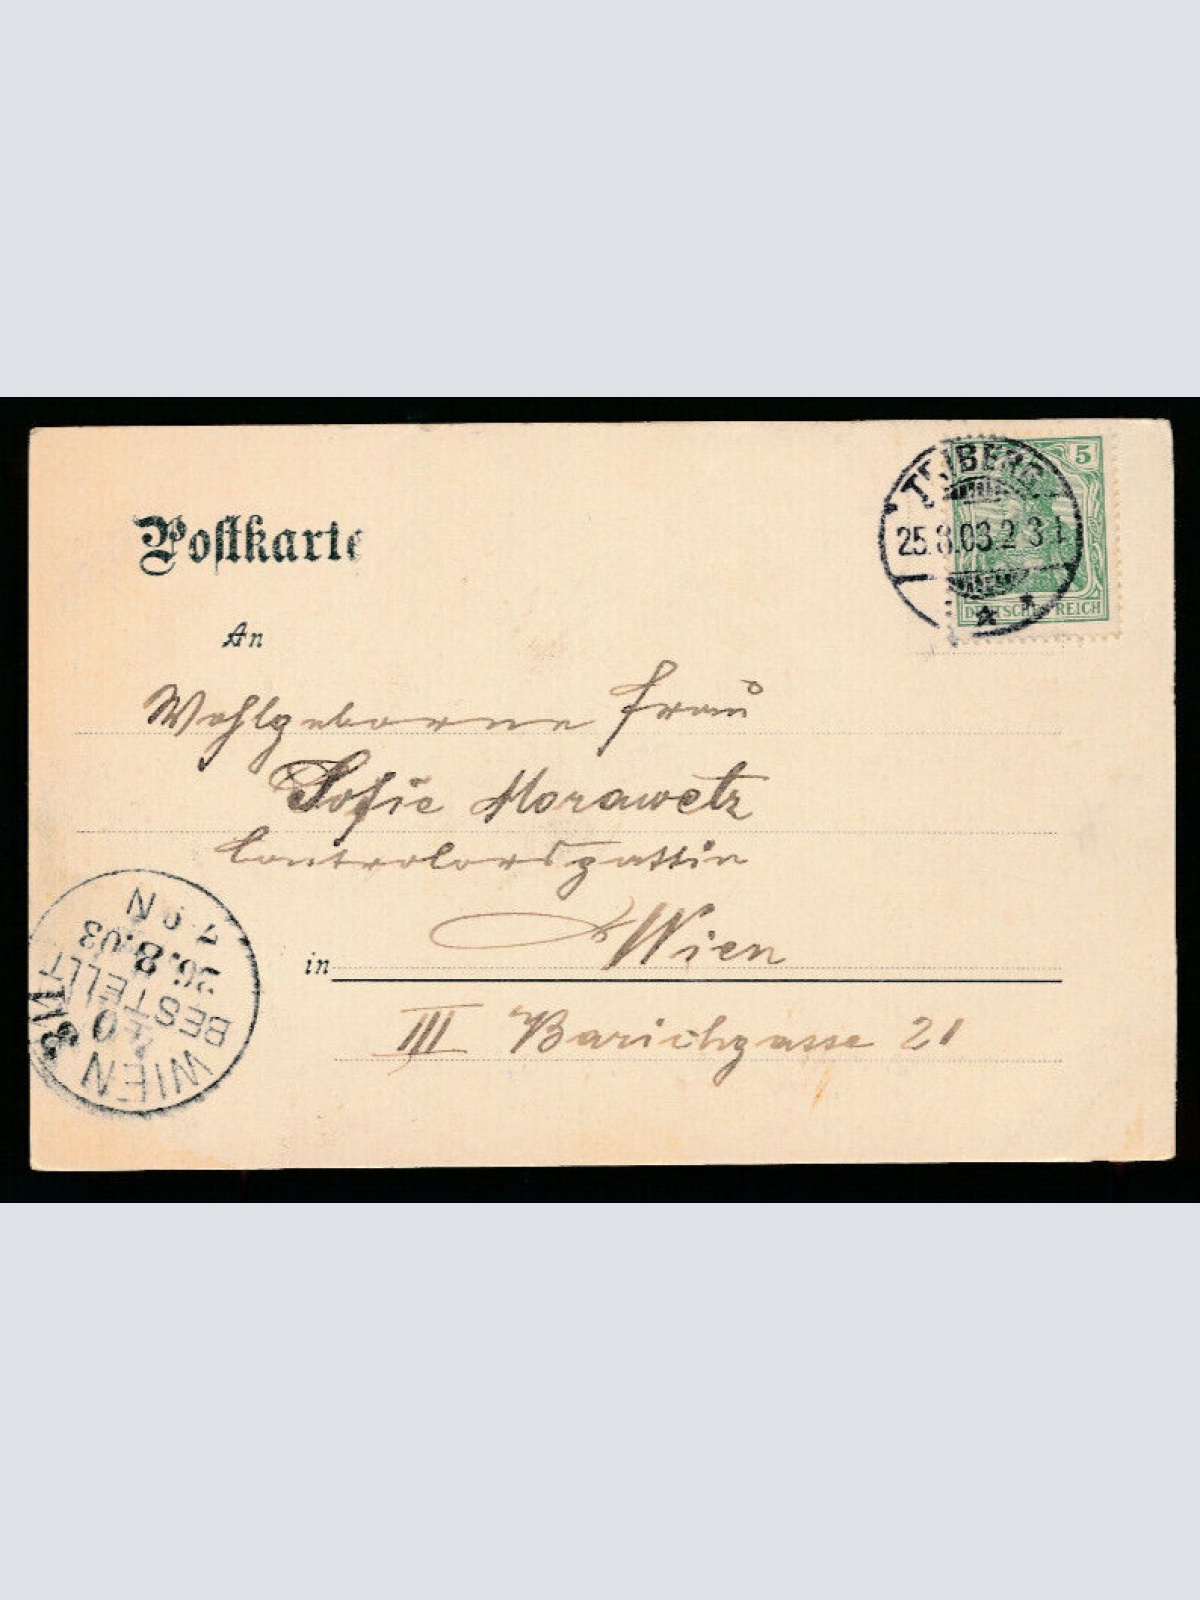 Postkarte
5
TRIBERG
25.8.03.2-3 N
DEUTSCHES REICH
An
Wohlgeborne Frau
Sofie Morawetz
Controlorsgattin
in Wien
III Barichgasse 21
WIEN
BESTELLT
26.8.03
N